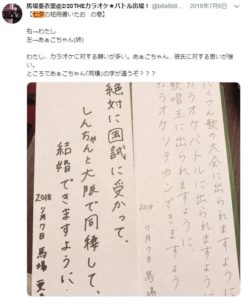 馬場亜衣里@2/20THEカラオケ★バトル出場！
2018年7月6日
【七夕の短冊書いたお　の巻】
右→わたし
左→あぁこちゃん(姉)
わたし、カラオケに対する願いが多い。あぁこちゃん、彼氏に対する思いが強い。
ところであぁこちゃん「同棲」の字が違うぞ？？？
たくさん歌の大会に出られますように
カラオケバトルに出られますように
歌唱王に出られますように
カラオケソラカンできますように
2018 7月7日 馬場
絶対に国試に受かって、
しんちゃんと大阪で同棲して、
結婚できますように。
2018
7月7日 馬場